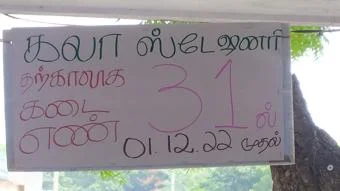 கலா ஸ்டேஷனரி
தற்காலிக
கடை
எண் 31 ல்
01.12.22 முதல்